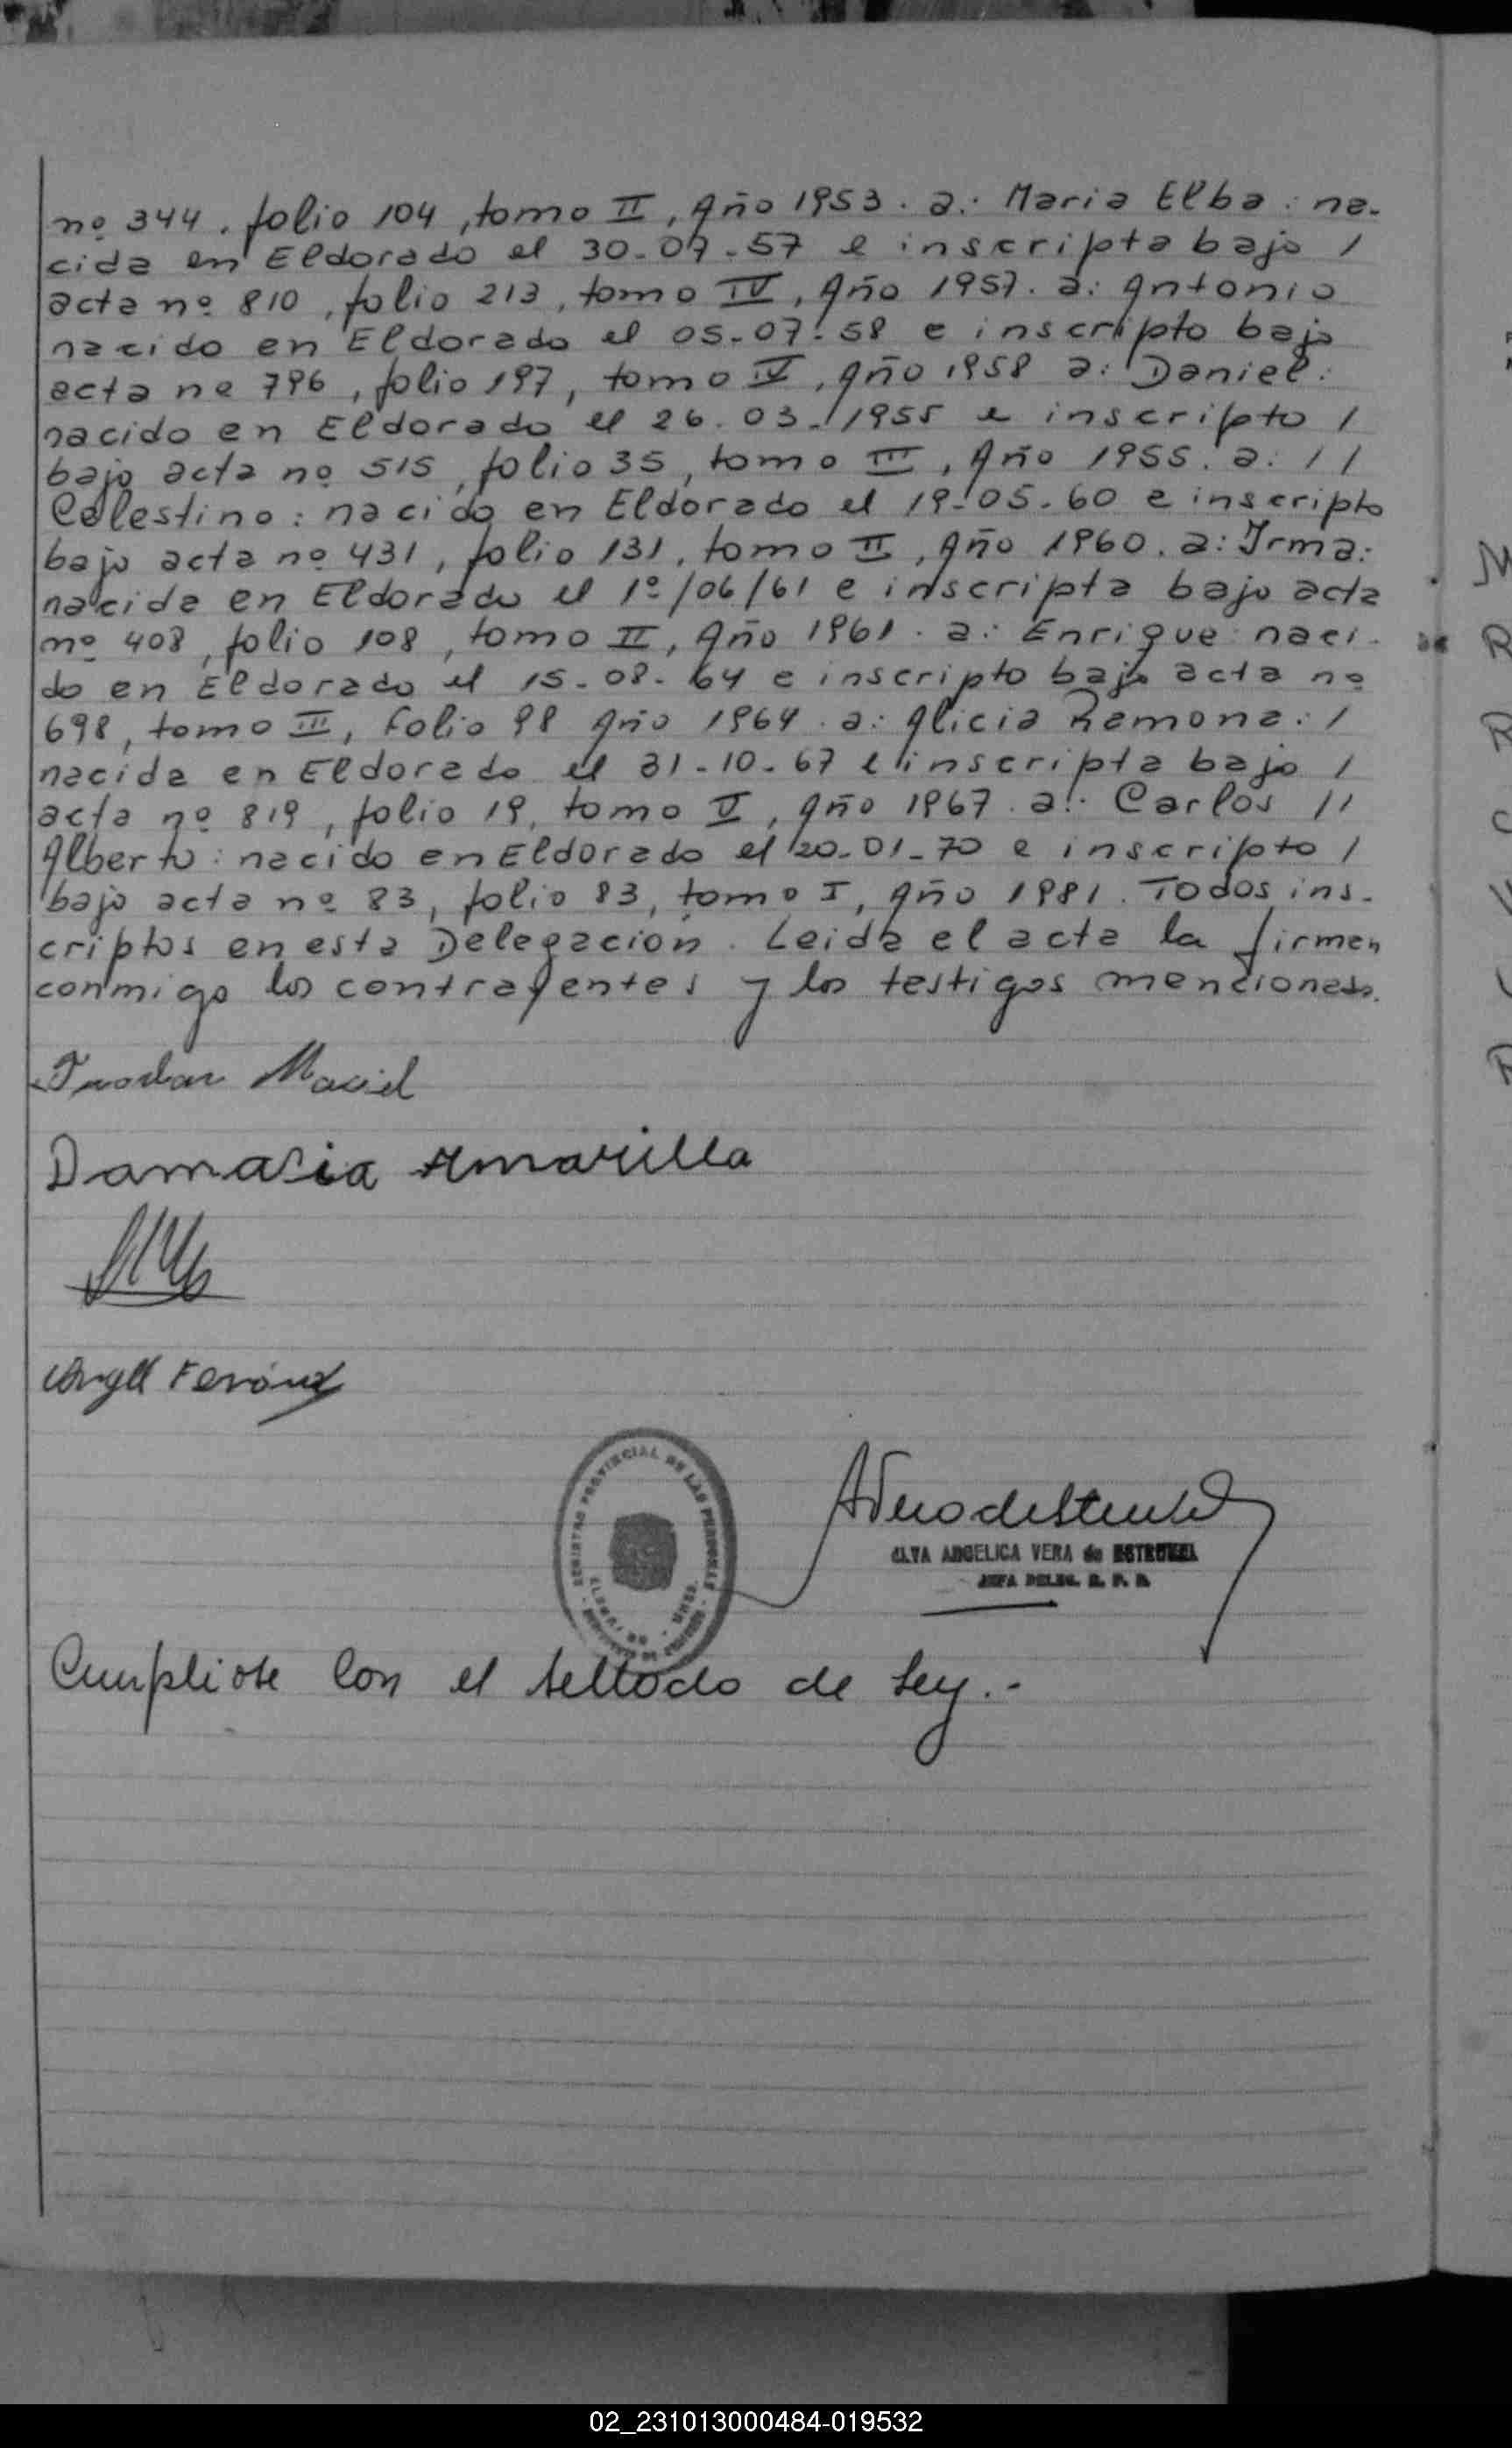 nº 344, folio 104, tomo II, Año 1953. a: Maria Elba: na-
cida en Eldorado el 30-07-57 e inscripta bajo /
acta nº 810, folio 213, tomo IV, Año 1957. a: Antonio
nacido en Eldorado el 05-07-58 e inscripto bajo
acta nº 796, folio 197, tomo IV, Año 1958 a: Daniel:
nacido en Eldorado el 26-03-1955 e inscripto /
bajo acta nº 515, folio 35, tomo III, Año 1955. a: //
Celestino: nacido en Eldorado el 19-05-60 e inscripto
bajo acta nº 431, folio 131, tomo II, Año 1960. a: Irma:
nacida en Eldorado el 1º/06/61 e inscripta bajo acta
nº 408, folio 108, tomo II, Año 1961. a: Enrique: naci-
do en Eldorado el 15-08-64 e inscripto bajo acta nº
698, tomo III, Folio 98 Año 1964. a: Alicia Ramona: /
nacida en Eldorado el 31-10-67 e inscripta bajo /
acta nº 819, folio 19, tomo V, Año 1967. a: Carlos //
Alberto: nacido en Eldorado el 20-01-70 e inscripto /
bajo acta nº 83, folio 83, tomo I, Año 1981. Todos ins-
criptos en esta Delegación. Leida el acta la firman
conmigo los contrayentes y los testigos mencionados.
Maciel
Damasia Amarilla
REGISTRO PROVINCIAL DE LAS PERSONAS
ANGELICA VERA de
JEFA DELEG. R. P. P.
Cumpliose con el sellado de Ley.-
02_231013000484-019532